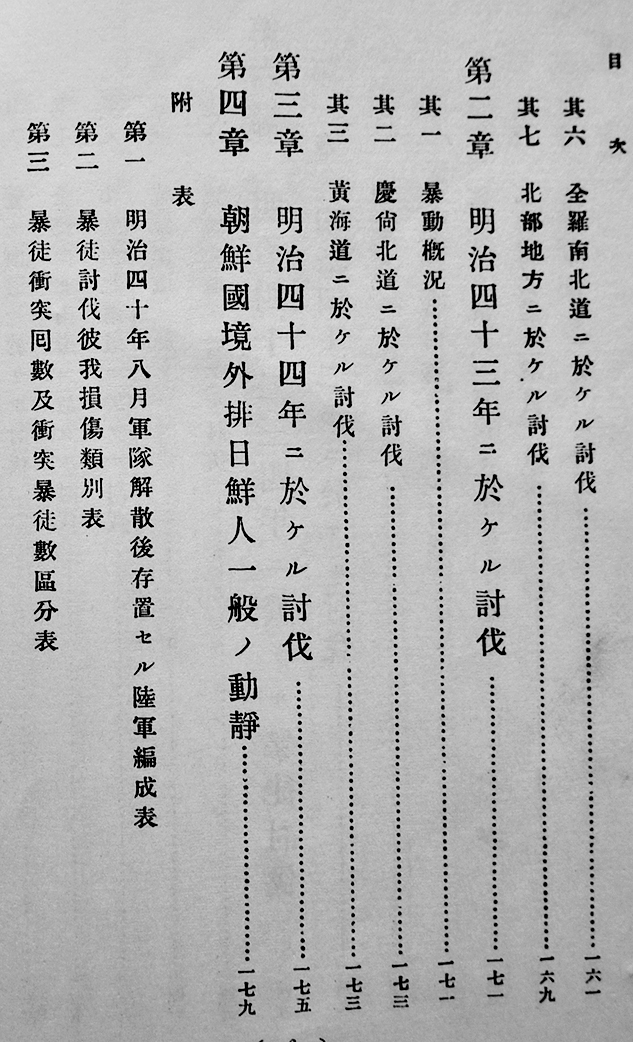 目次
其六 全羅南北道ニ於ケル討伐……一六一
其七 北部地方ニ於ケル討伐……一六九
第二章 明治四十三年ニ於ケル討伐……一七一
其一 暴動概況……一七一
其二 慶尙北道ニ於ケル討伐……一七三
其三 黃海道ニ於ケル討伐……一七三
第三章 明治四十四年ニ於ケル討伐……一七五
第四章 朝鮮國境外排日鮮人一般ノ動靜……一七九
附表
第一 明治四十年八月軍隊解散後存置セル陸軍編成表
第二 暴徒討伐彼我損傷類別表
第三 暴徒衝突回數及衝突暴徒數區分表